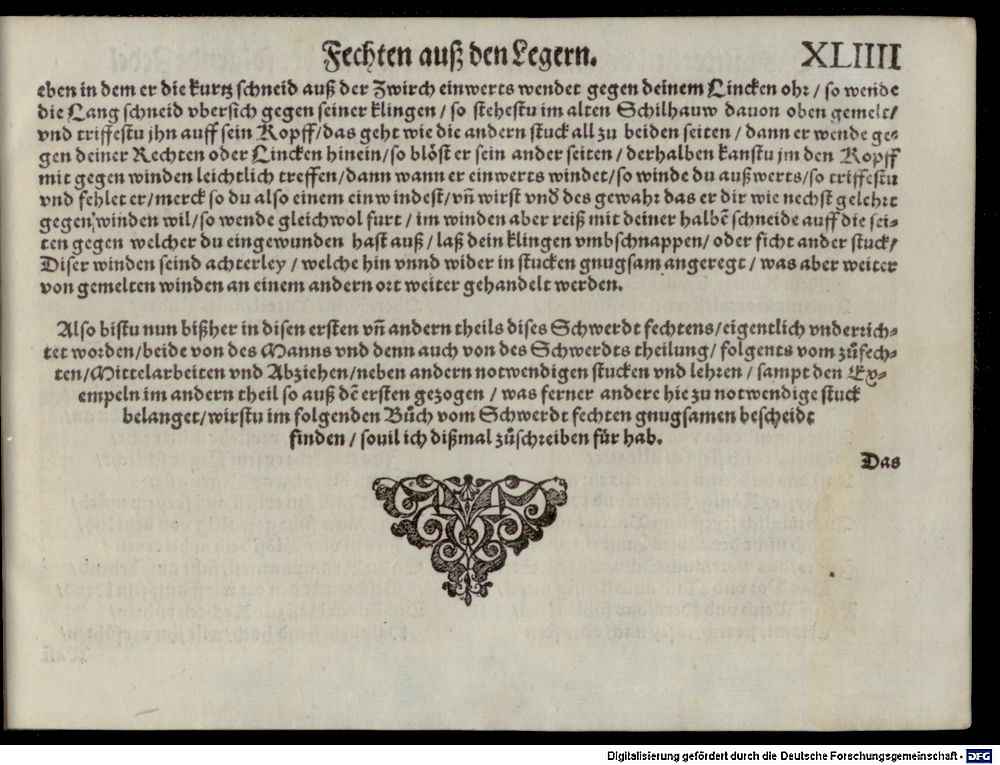 Fechten auß den Legern. XLIIII
eben in dem er die kurtz schneid auß der Zwirch einwerts wendet gegen deinem Lincken ohr / so wende
die Lang schneid vbersich gegen seiner klingen / so stehestu im alten Schilhauw dauon oben gemelt/
vnd triffestu jhn auff sein Kopff/das geht wie die andern stuck all zu beiden seiten / dann er wende ge⸗
gen deiner Rechten oder Lincken hinein/so blöst er sein ander seiten / derhalben kanstu jm den Kopff
mit gegen winden leichtlich treffen/dann wann er einwerts windet/so winde du außwerts/so triffestu
vnd fehlet er/merck so du also einem einwindest/vñ wirst vnd des gewahr das er dir wie nechst gelehrt
gegen winden wil/so wende gleichwol furt / im winden aber reiß mit deiner halbẽ schneide auff die sei⸗
ten gegen welcher du eingewunden hast auß / laß dein klingen vmbschnappen/ oder ficht ander stuck/
Diser winden seind achterley / welche hin vnnd wider in stucken gnugsam angeregt / was aber weiter
von gemelten winden an einem andern ort weiter gehandelt werden.
Also bistu nun bißher in disen ersten vñ andern theils dises Schwerdt fechtens/eigentlich vnderrich⸗
tet worden/beide von des Manns vnd denn auch von des Schwerdts theilung/ folgents vom zůfech⸗
ten/Mittelarbeiten vnd Abziehen/neben andern notwendigen stucken vnd lehren / sampt den Ex⸗
empeln im andern theil so auß dẽ ersten gezogen / was ferner andere hie zu notwendige stuck
belanget/wirstu im folgenden Bůch vom Schwerdt fechten gnugsamen bescheidt
finden / souil ich dißmal zůschreiben für hab.
Das
Digitalisierung gefördert durch die Deutsche Forschungsgemeinschaft - DFG